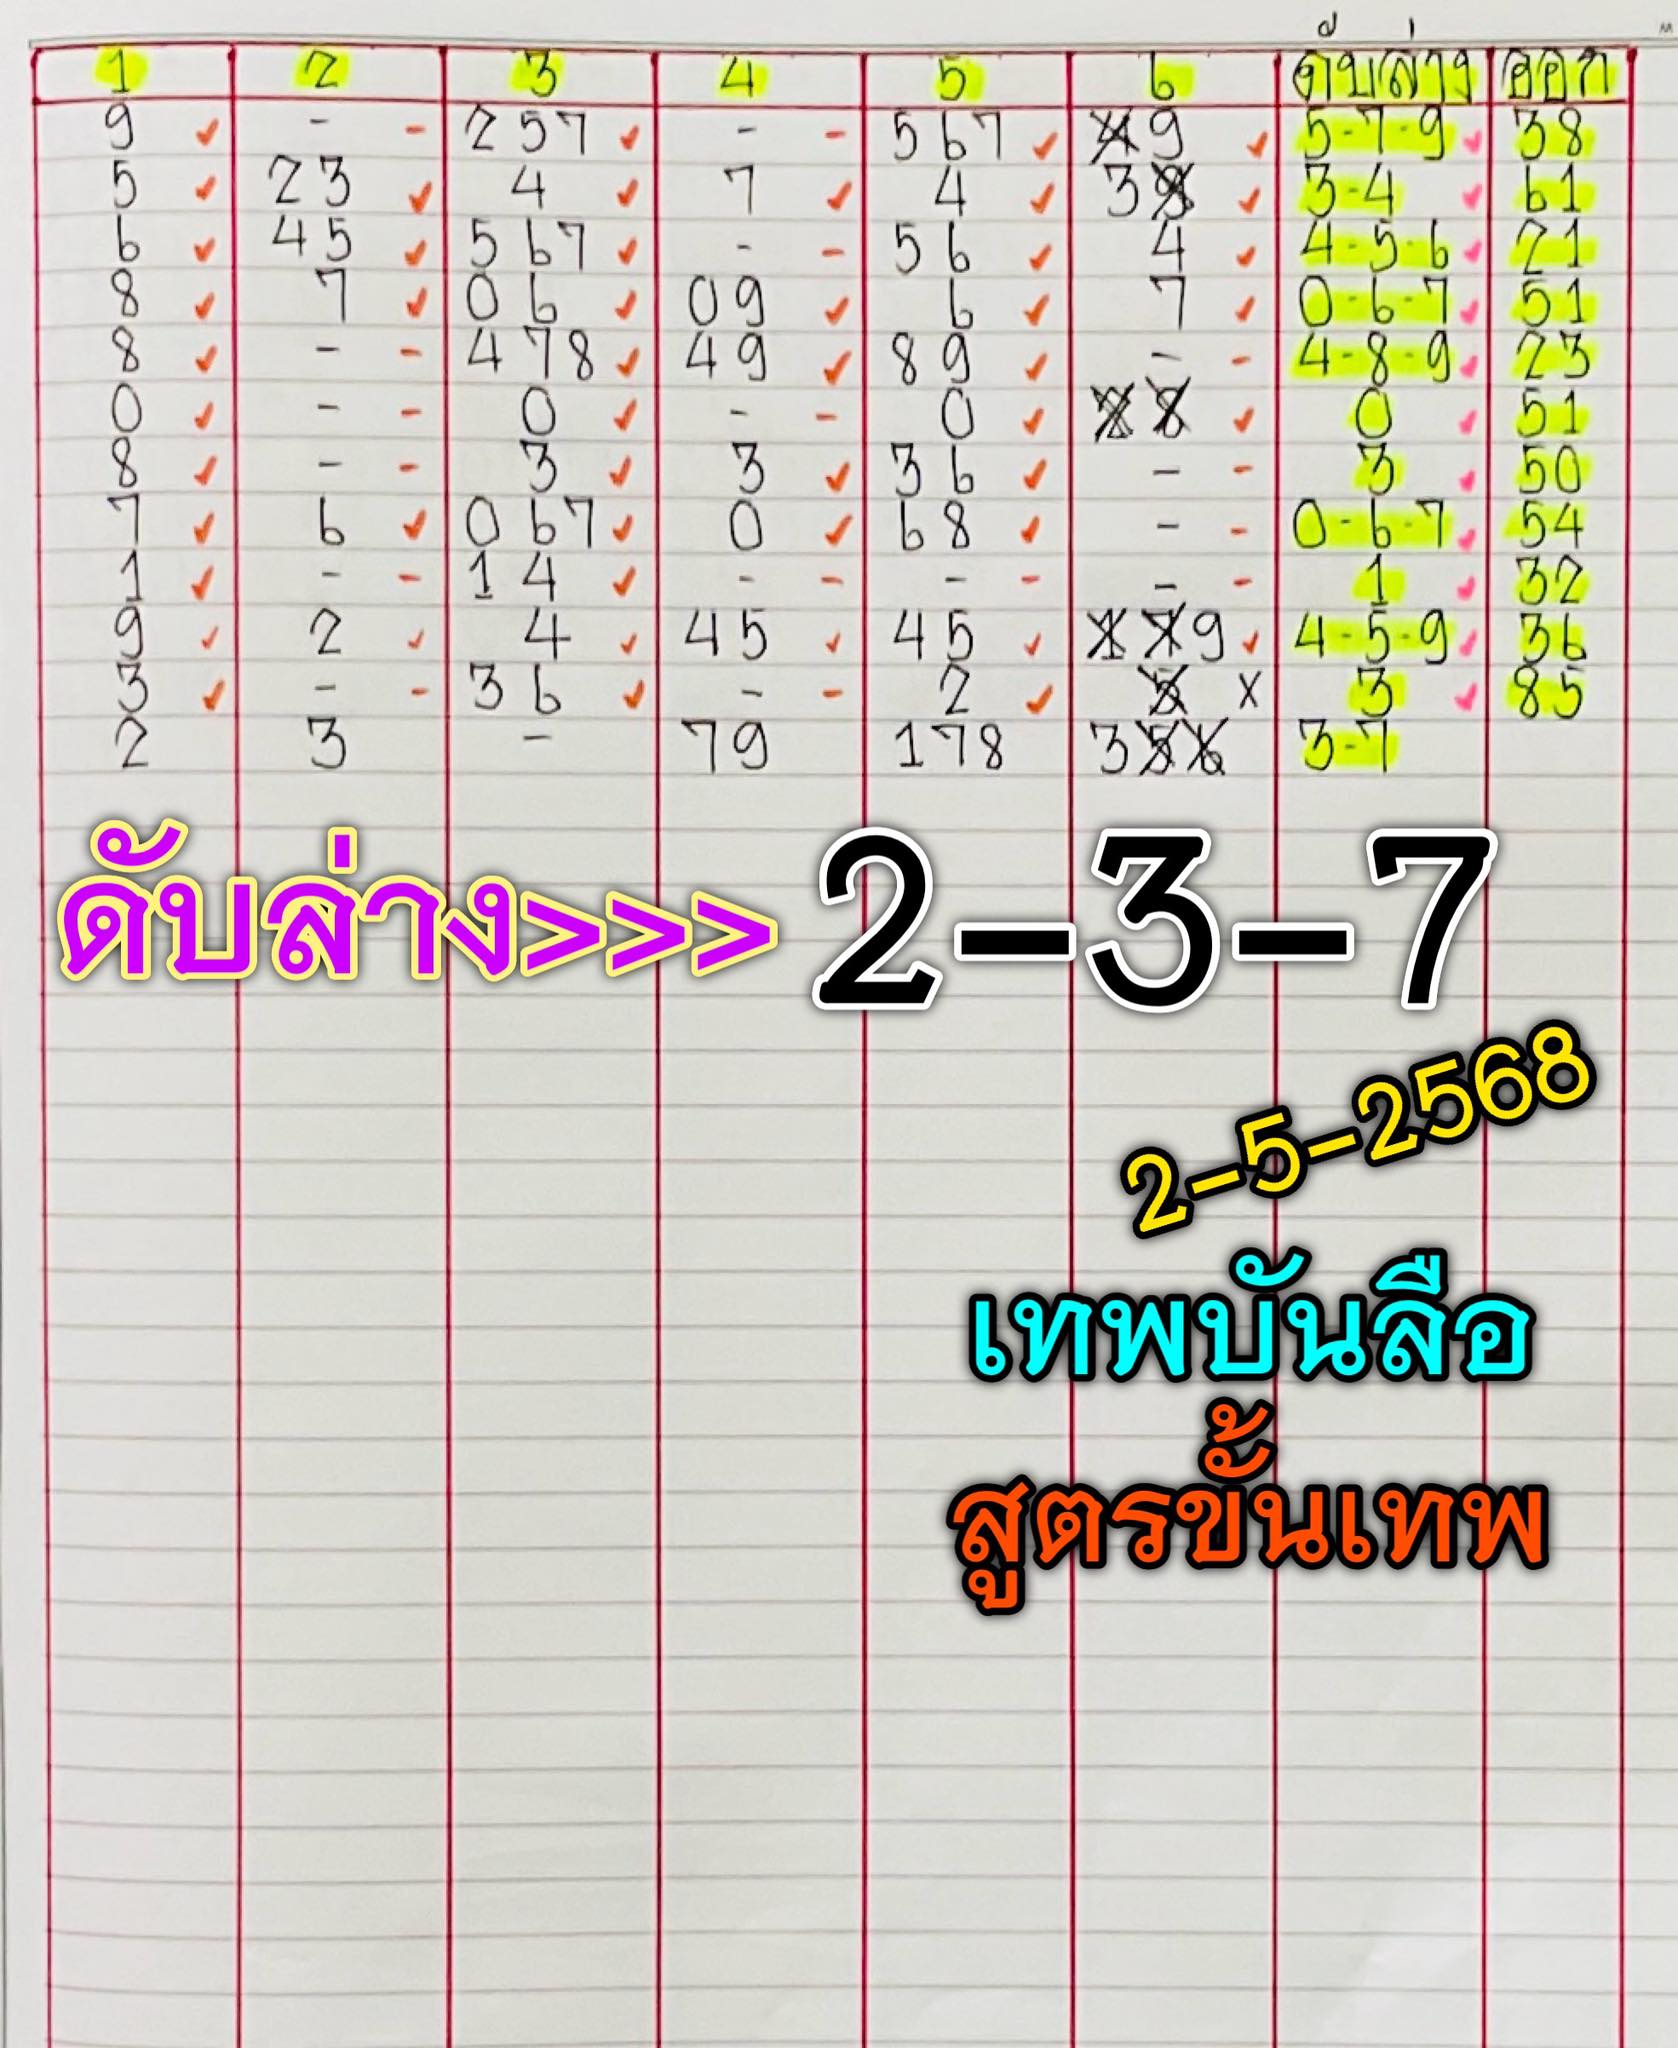 1 2 3 4 5 6 ดับล่าง ออก
9 ✓ - - 257 ✓ - - 567 ✓ 9 ✓ 5-7-9 ✓ 38
5 ✓ 23 ✓ 4 ✓ 7 ✓ 4 ✓ 3 ✓ 3-4 ✓ 61
6 ✓ 45 ✓ 567 ✓ - - 56 ✓ 4 ✓ 4-5-6 ✓ 21
8 ✓ 7 ✓ 06 ✓ 09 ✓ 6 ✓ 7 ✓ 0-6-7 ✓ 51
8 ✓ - - 478 ✓ 49 ✓ 89 ✓ - - 4-8-9 ✓ 23
0 ✓ - - 0 ✓ - - 0 ✓ ✓ 0 ✓ 51
8 ✓ - - 3 ✓ 3 ✓ 36 ✓ - - 3 ✓ 50
7 ✓ 6 ✓ 067 ✓ 0 ✓ 68 ✓ - - 0-6-7 ✓ 54
1 ✓ - - 14 ✓ - - - - - - 1 ✓ 32
9 ✓ 2 ✓ 4 ✓ 45 ✓ 45 ✓ 179 ✓ 4-5-9 ✓ 36
3 ✓ - - 36 ✓ - - 2 ✓ 5 X 3 ✓ 85
2 3 - 79 178 356 3-7
ดับล่าง>>> 2-3-7
2-5-2568
เทพบันลือ
สูตรขั้นเทพ